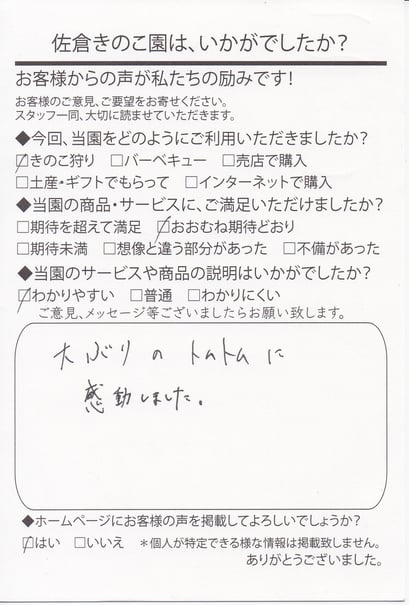 佐倉きのこ園は、いかがでしたか？
お客様からの声が私たちの励みです！
お客様のご意見、ご要望をお寄せください。
スタッフ一同、大切に読ませていただきます。
◆今回、当園をどのようにご利用いただきましたか？
☑きのこ狩り □バーベキュー □売店で購入
□土産・ギフトでもらって □インターネットで購入
◆当園の商品・サービスに、ご満足いただけましたか？
□期待を超えて満足 ☑おおむね期待どおり
□期待未満 □想像と違う部分があった □不備があった
◆当園のサービスや商品の説明はいかがでしたか？
☑わかりやすい □普通 □わかりにくい
ご意見、メッセージ等ございましたらお願い致します。
大ぶりのトムトムに
感動しました。
◆ホームページにお客様の声を掲載してよろしいでしょうか？
☑はい □いいえ ＊個人が特定できる様な情報は掲載致しません。
ありがとうございました。